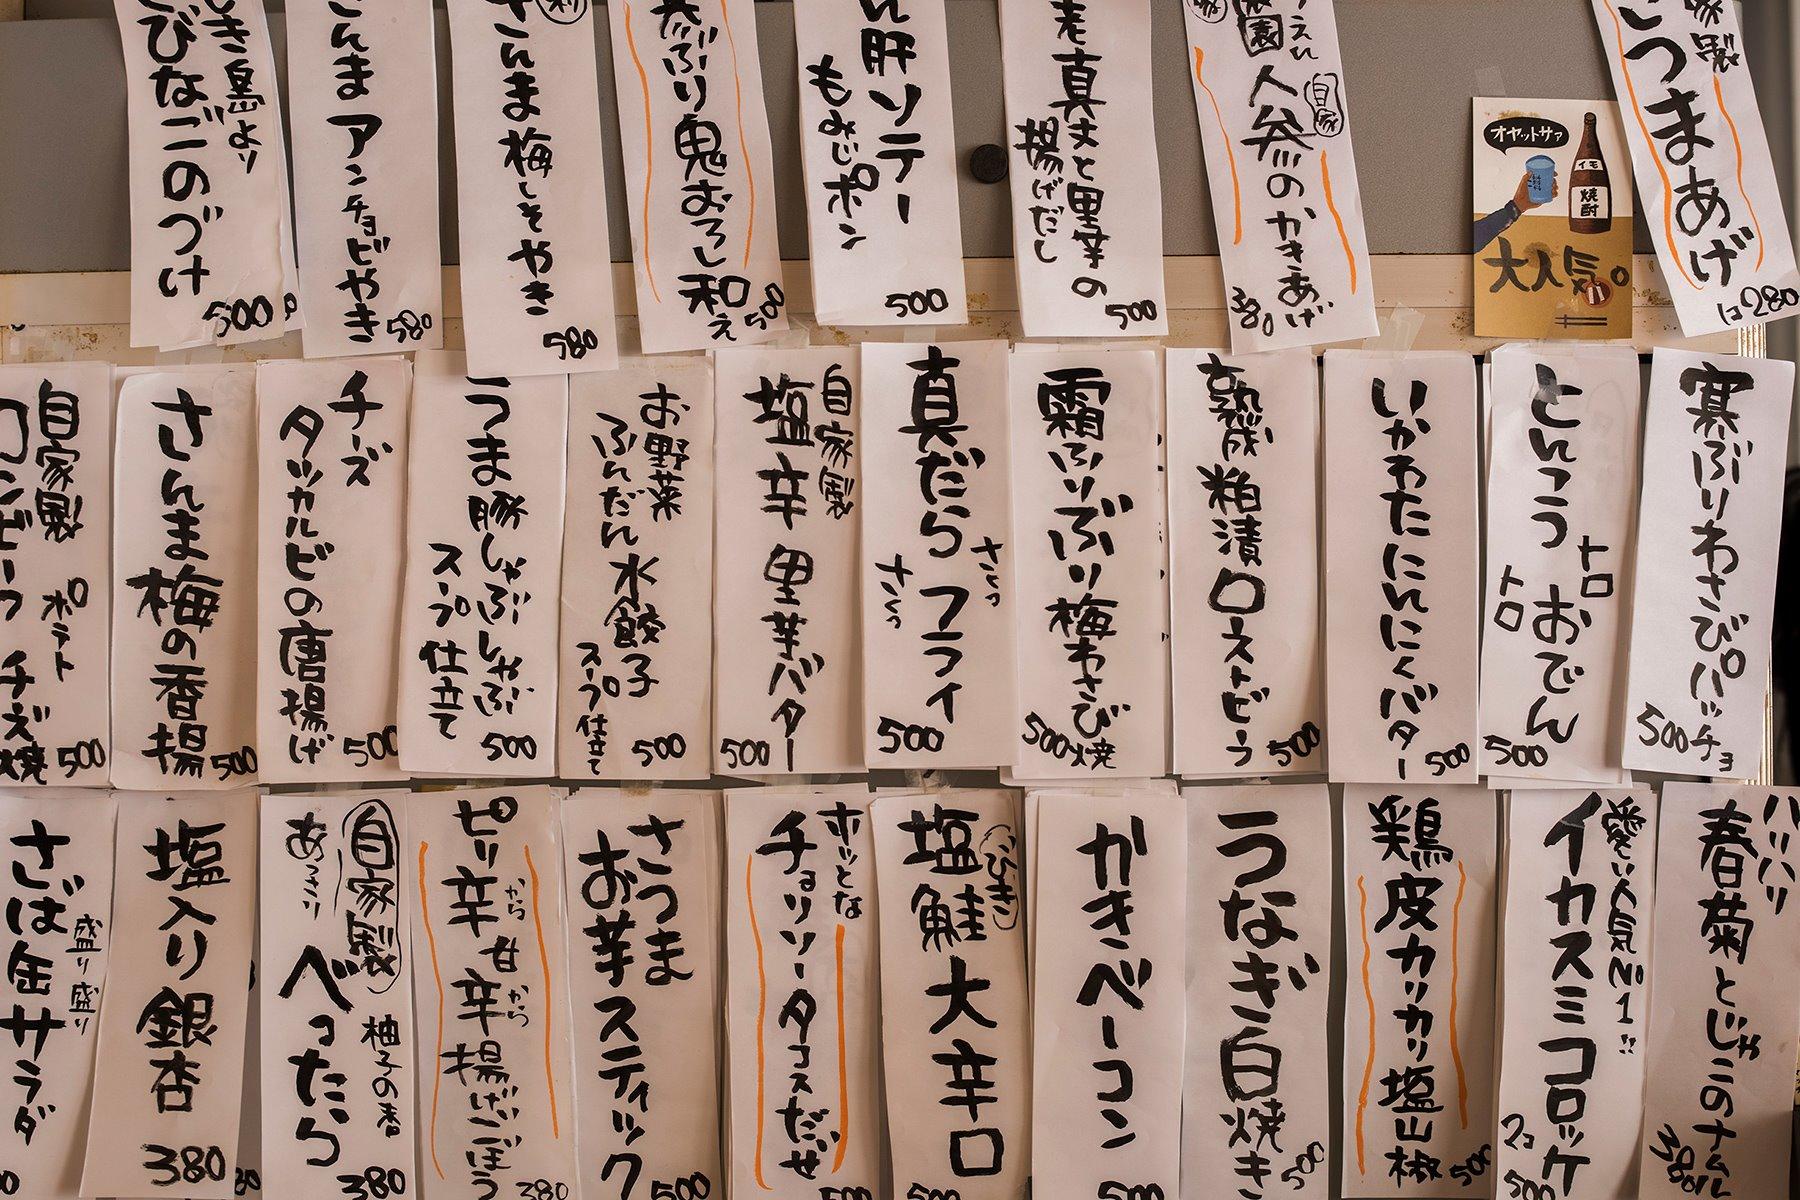 き鳥より
びなごのづけ
500
んま アンチョビやき
580
さんま梅しそやき
580
ぶり鬼おろし和え
500
ん肝ソテー
もみじポン
500
老真丈と里芋の
揚げだし
500
自家
人参のかきあげ
380
オヤットサァ
イモ
焼酎
大人気。
家製
つまあげ
280
自家製
コンビーフ ポテト チーズ焼
500
さんま梅の香揚
500
チーズ
タッカルビの唐揚げ
500
うま豚しゃぶしゃぶ
スープ仕立て
500
お野菜
ふんだん水餃子
スープ仕立て
500
自家製
塩辛 里芋バター
500
真だらフライ
さくっ
さくっ
500
霜ふりぶり梅わさび焼
500
熟成粕漬ローストビーフ
500
いかわたにんにくバター
500
とんこつ おでん
トロ
トロ
500
寒ぶりわさびパッチョ
500
さば缶サラダ
盛り盛り
塩入り銀杏
380
自家製
あっさり
べったら
柚子の香
380
ピリ辛 甘辛 揚げごぼう
から
から
380
さつま
お芋スティック
500
ホッとな
チョリソータコスだぜ
500
こびき
塩鮭大辛口
500
かきベーコン
500
うなぎ白焼き
500
鶏皮カリカリ塩山椒
500
愛しい人気No1!!
イカスミコロッケ
2コ
500
パリパリ
春菊とじゃこのナムル
380